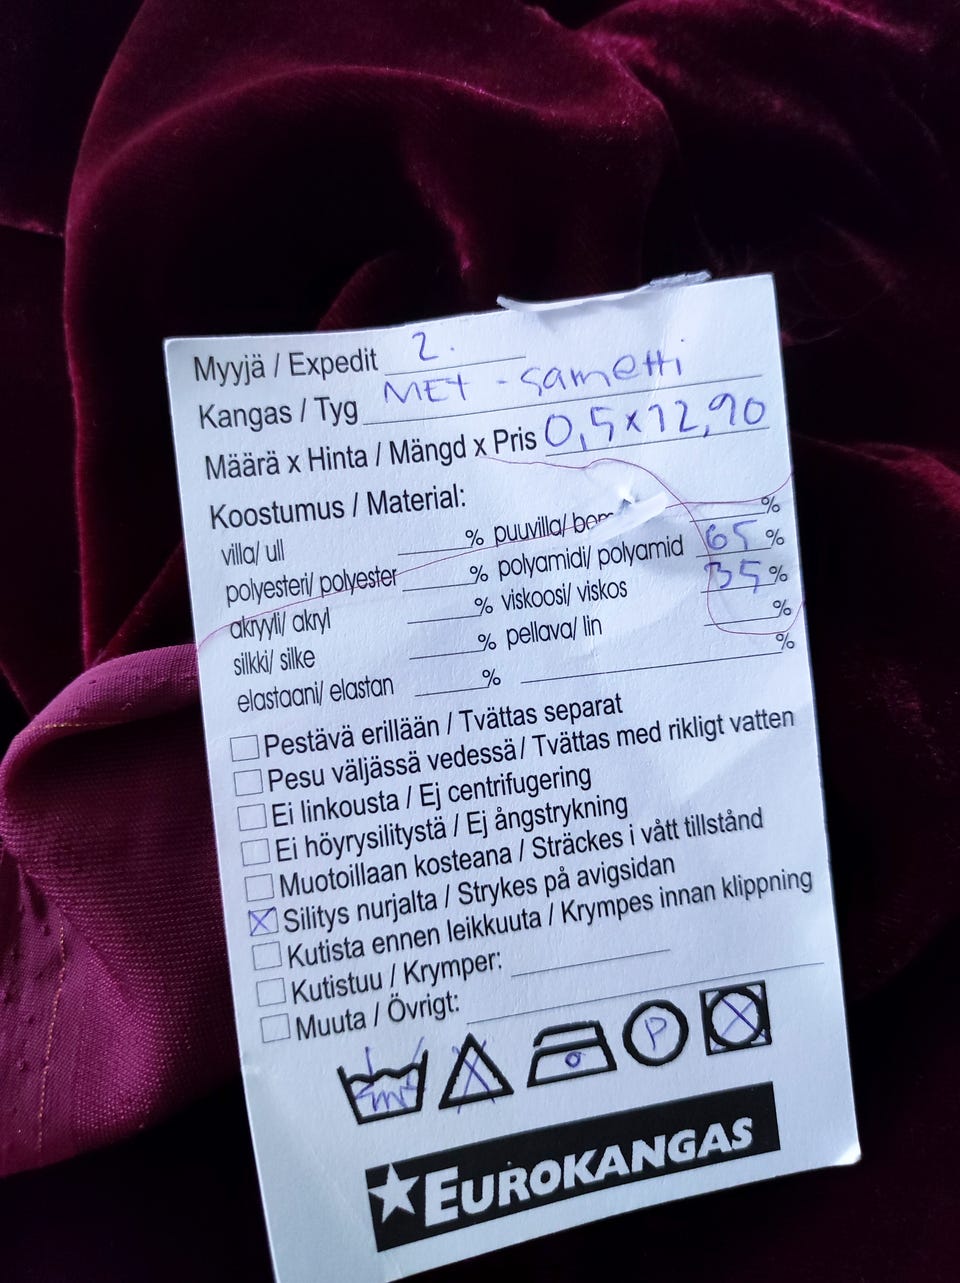 Myyjä / Expedit 2.
Kangas / Tyg MEX - sametti
Määrä x Hinta / Mängd x Pris 0,5 x 12,90
Koostumus / Material:
villa/ ull % puuvilla/ %
polyesteri/ polyester % polyamidi/ polyamid 65 %
akryyli/ akryl % viskoosi/ viskos 35 %
silkki/ silke % pellava/ lin %
elastaani/ elastan % %
Pestävä erillään / Tvättas separat
Pesu väljässä vedessä / Tvättas med rikligt vatten
Ei linkousta / Ej centrifugering
Ei höyrysilitystä / Ej ångstrykning
Muotoillaan kosteana / Sträckes i vått tillstånd
X Silitys nurjalta / Strykes på avigsidan
Kutista ennen leikkuuta / Krympes innan klippning
Kutistuu / Krymper:
Muuta / Övrigt:
P
EUROKANGAS